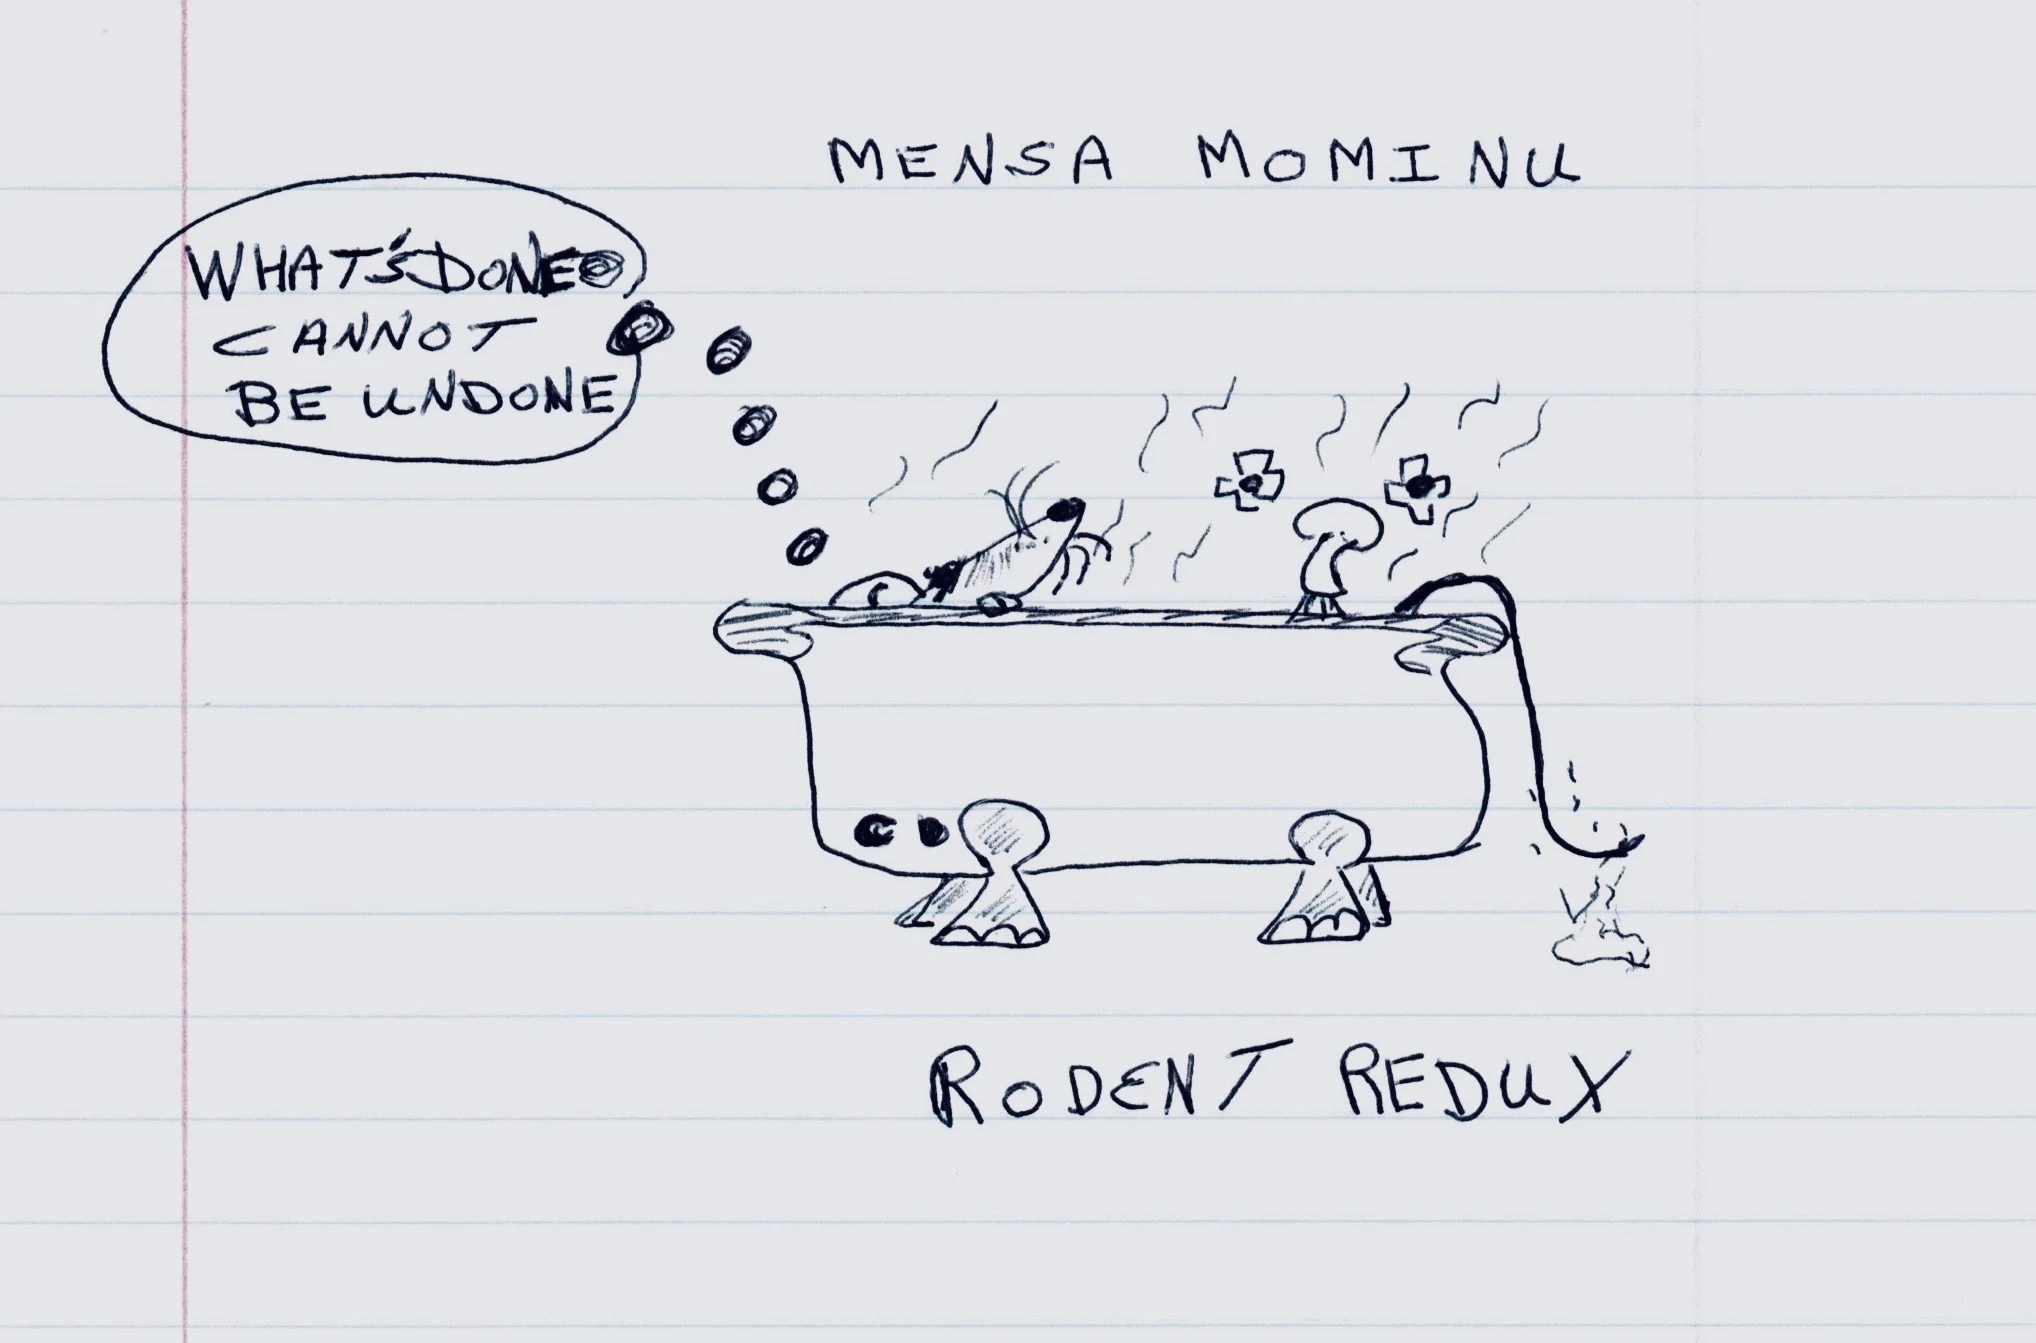 MENSA MOMINU
WHAT'S DONE
CANNOT
BE UNDONE
RODENT REDUX